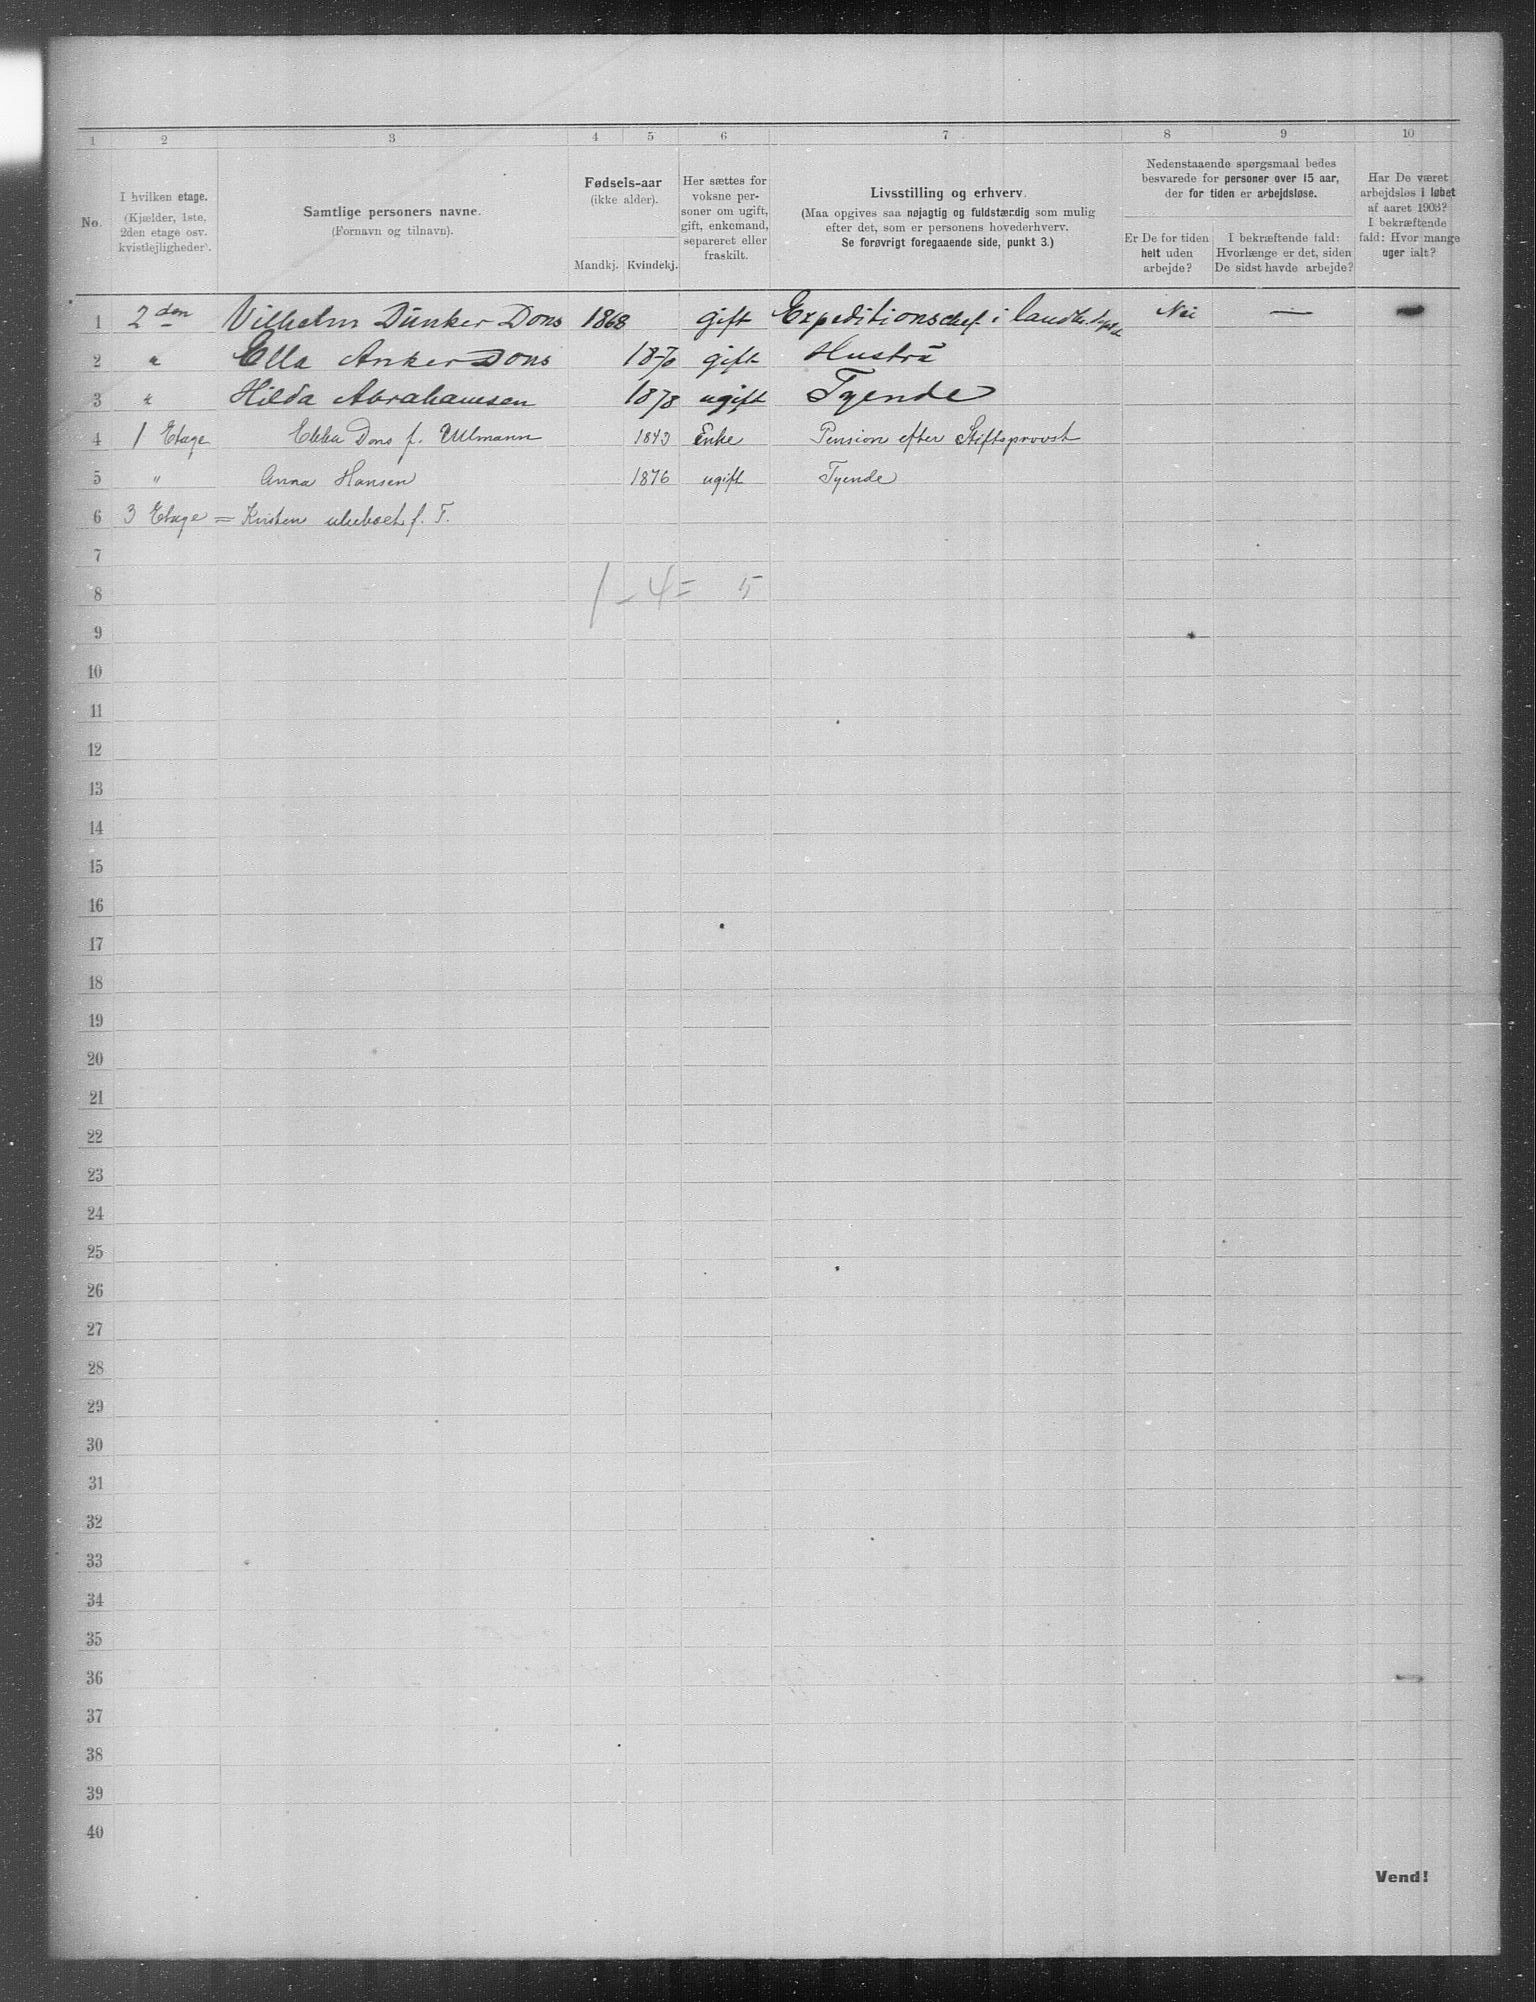 1 2 3 4 5 6 7 8 9 10
No.
I hvilken etage.
(Kjælder, 1ste,
2den etage osv.
kvistlejligheder).
Samtlige personers navne.
(Fornavn og tilnavn).
Fødsels-aar
(ikke alder).
Mandkj. Kvindekj.
Her sættes for
voksne per-
soner om ugift,
gift, enkemand,
separeret eller
fraskilt.
Livsstilling og erhverv.
(Maa opgives saa nøjagtig og fuldstærdig som mulig
efter det, som er personens hovederhverv.
Se forøvrigt foregaaende side, punkt 3.)
Nedenstaaende spørgsmaal bedes
besvarede for personer over 15 aar,
der for tiden er arbejdsløse.
Er De for tiden
helt uden
arbejde?
I bekræftende fald:
Hvorlænge er det, siden
De sidst havde arbejde?
Har De været
arbejdsløs i løbet
af aaret 1903?
I bekræftende
fald: Hvor mange
uger ialt?
1 2 den Vilhelm Dünker Dons 1868 gift Expeditionschef i Nei —
2 " Ella Anker Dons 1870 gift Hustrü
3 " Hilda Abrahamsen 1878 ugift Tyende
4 1 Etage Dons f. Ullmann 1843 Enke Pension efter Stiftsprovst
5 " Anna Hansen 1876 ugift Tyende
6 3 Etage = Kvisten ubeboet f. T.
7
8 1 - 4 = 5
9
10
11
12
13
14
15
16
17
18
19
20
21
22
23
24
25
26
27
28
29
30
31
32
33
34
35
36
37
38
39
40
Vend!